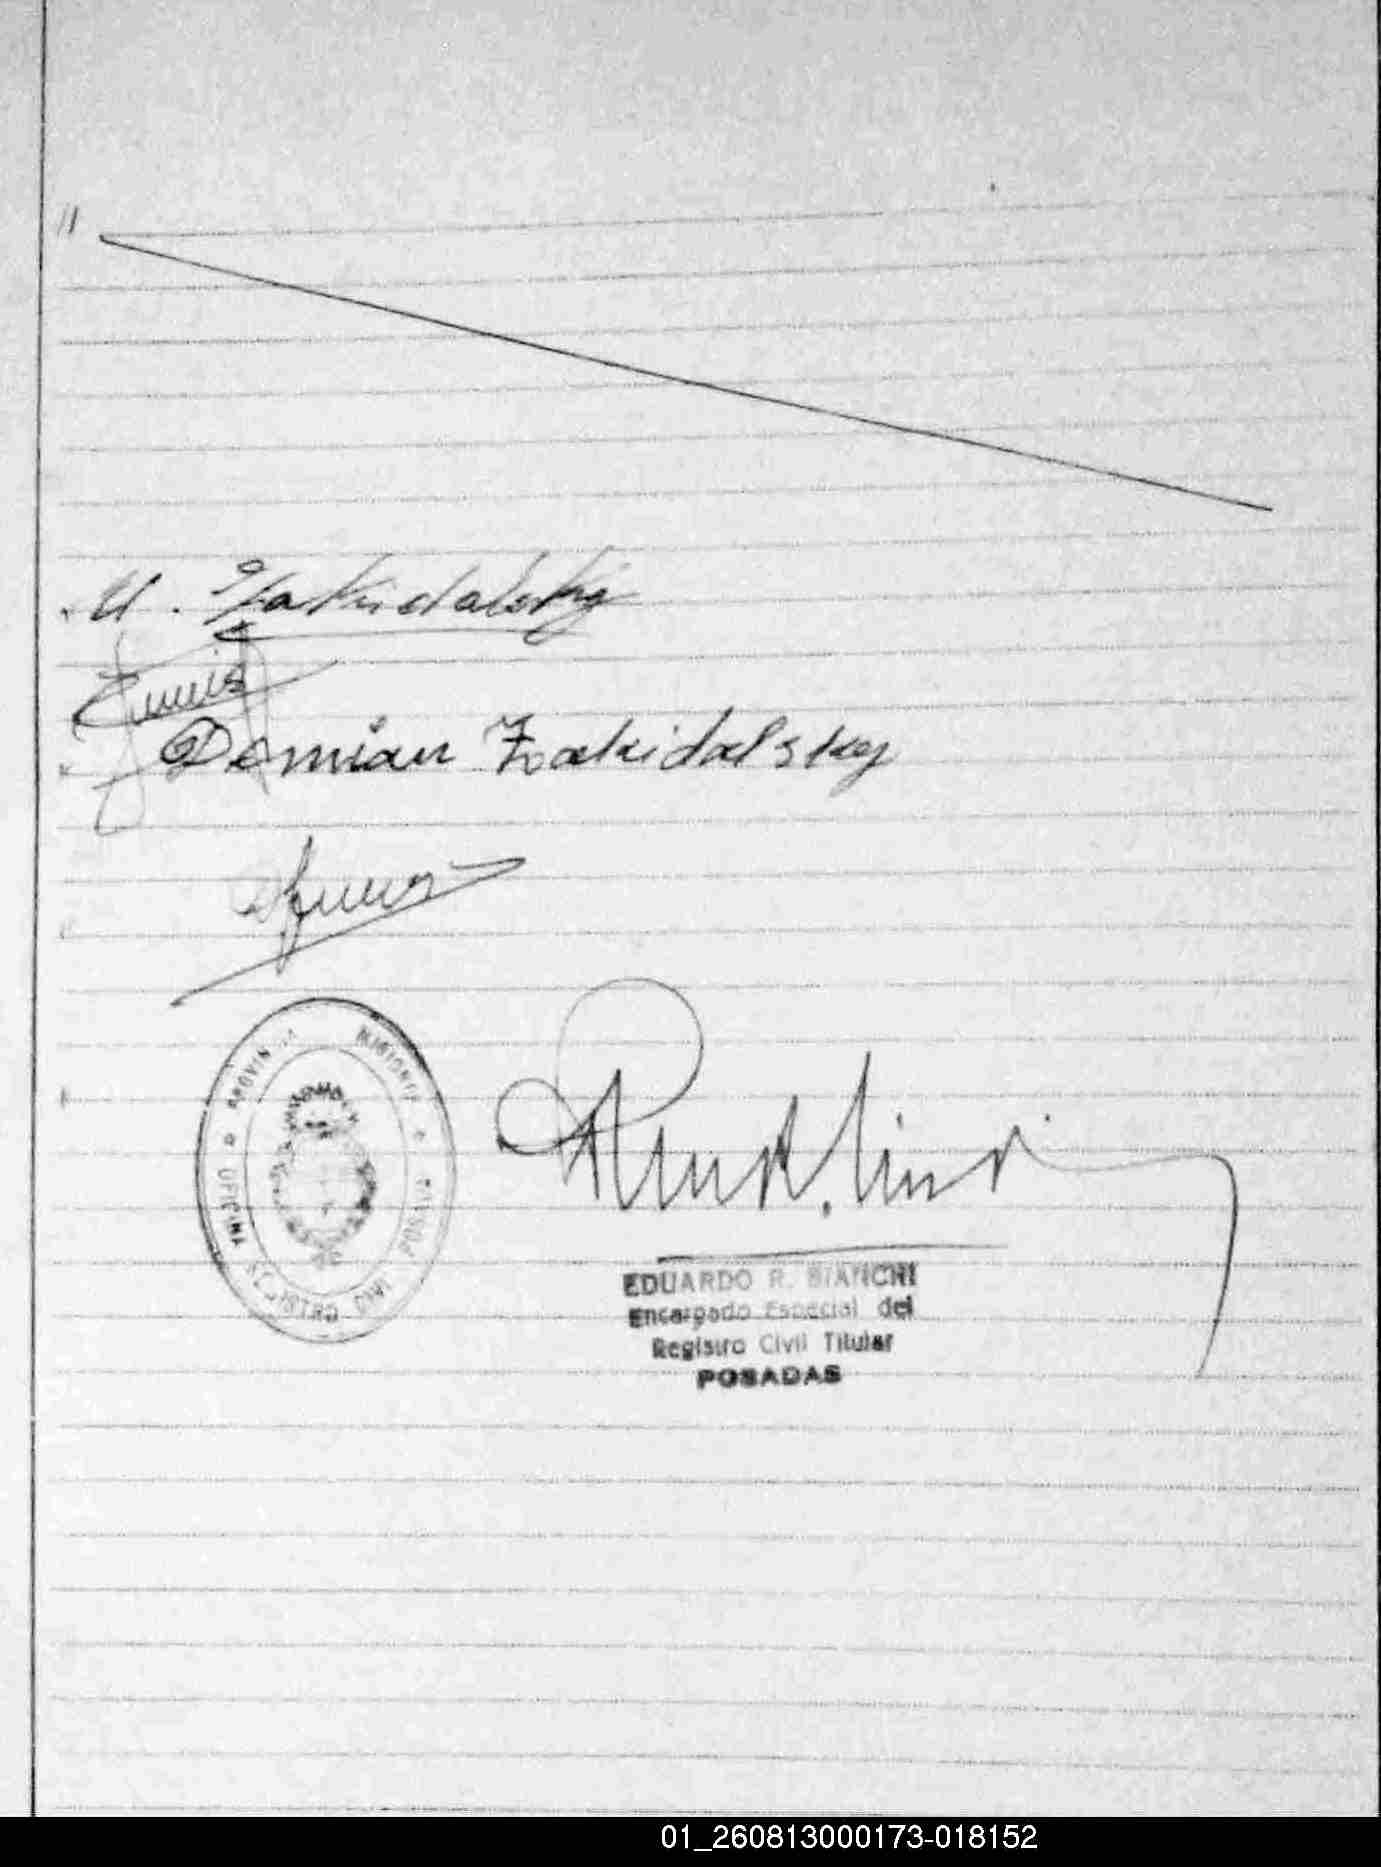 //
M. Zakidalsky
Demian Zakidalsky
PROVINCIA MISIONES
OFICINA REGISTRO CIVIL POSADAS
EDUARDO R. BIANCHI
Encargado Especial del
Registro Civil Titular
POSADAS
01_260813000173-018152